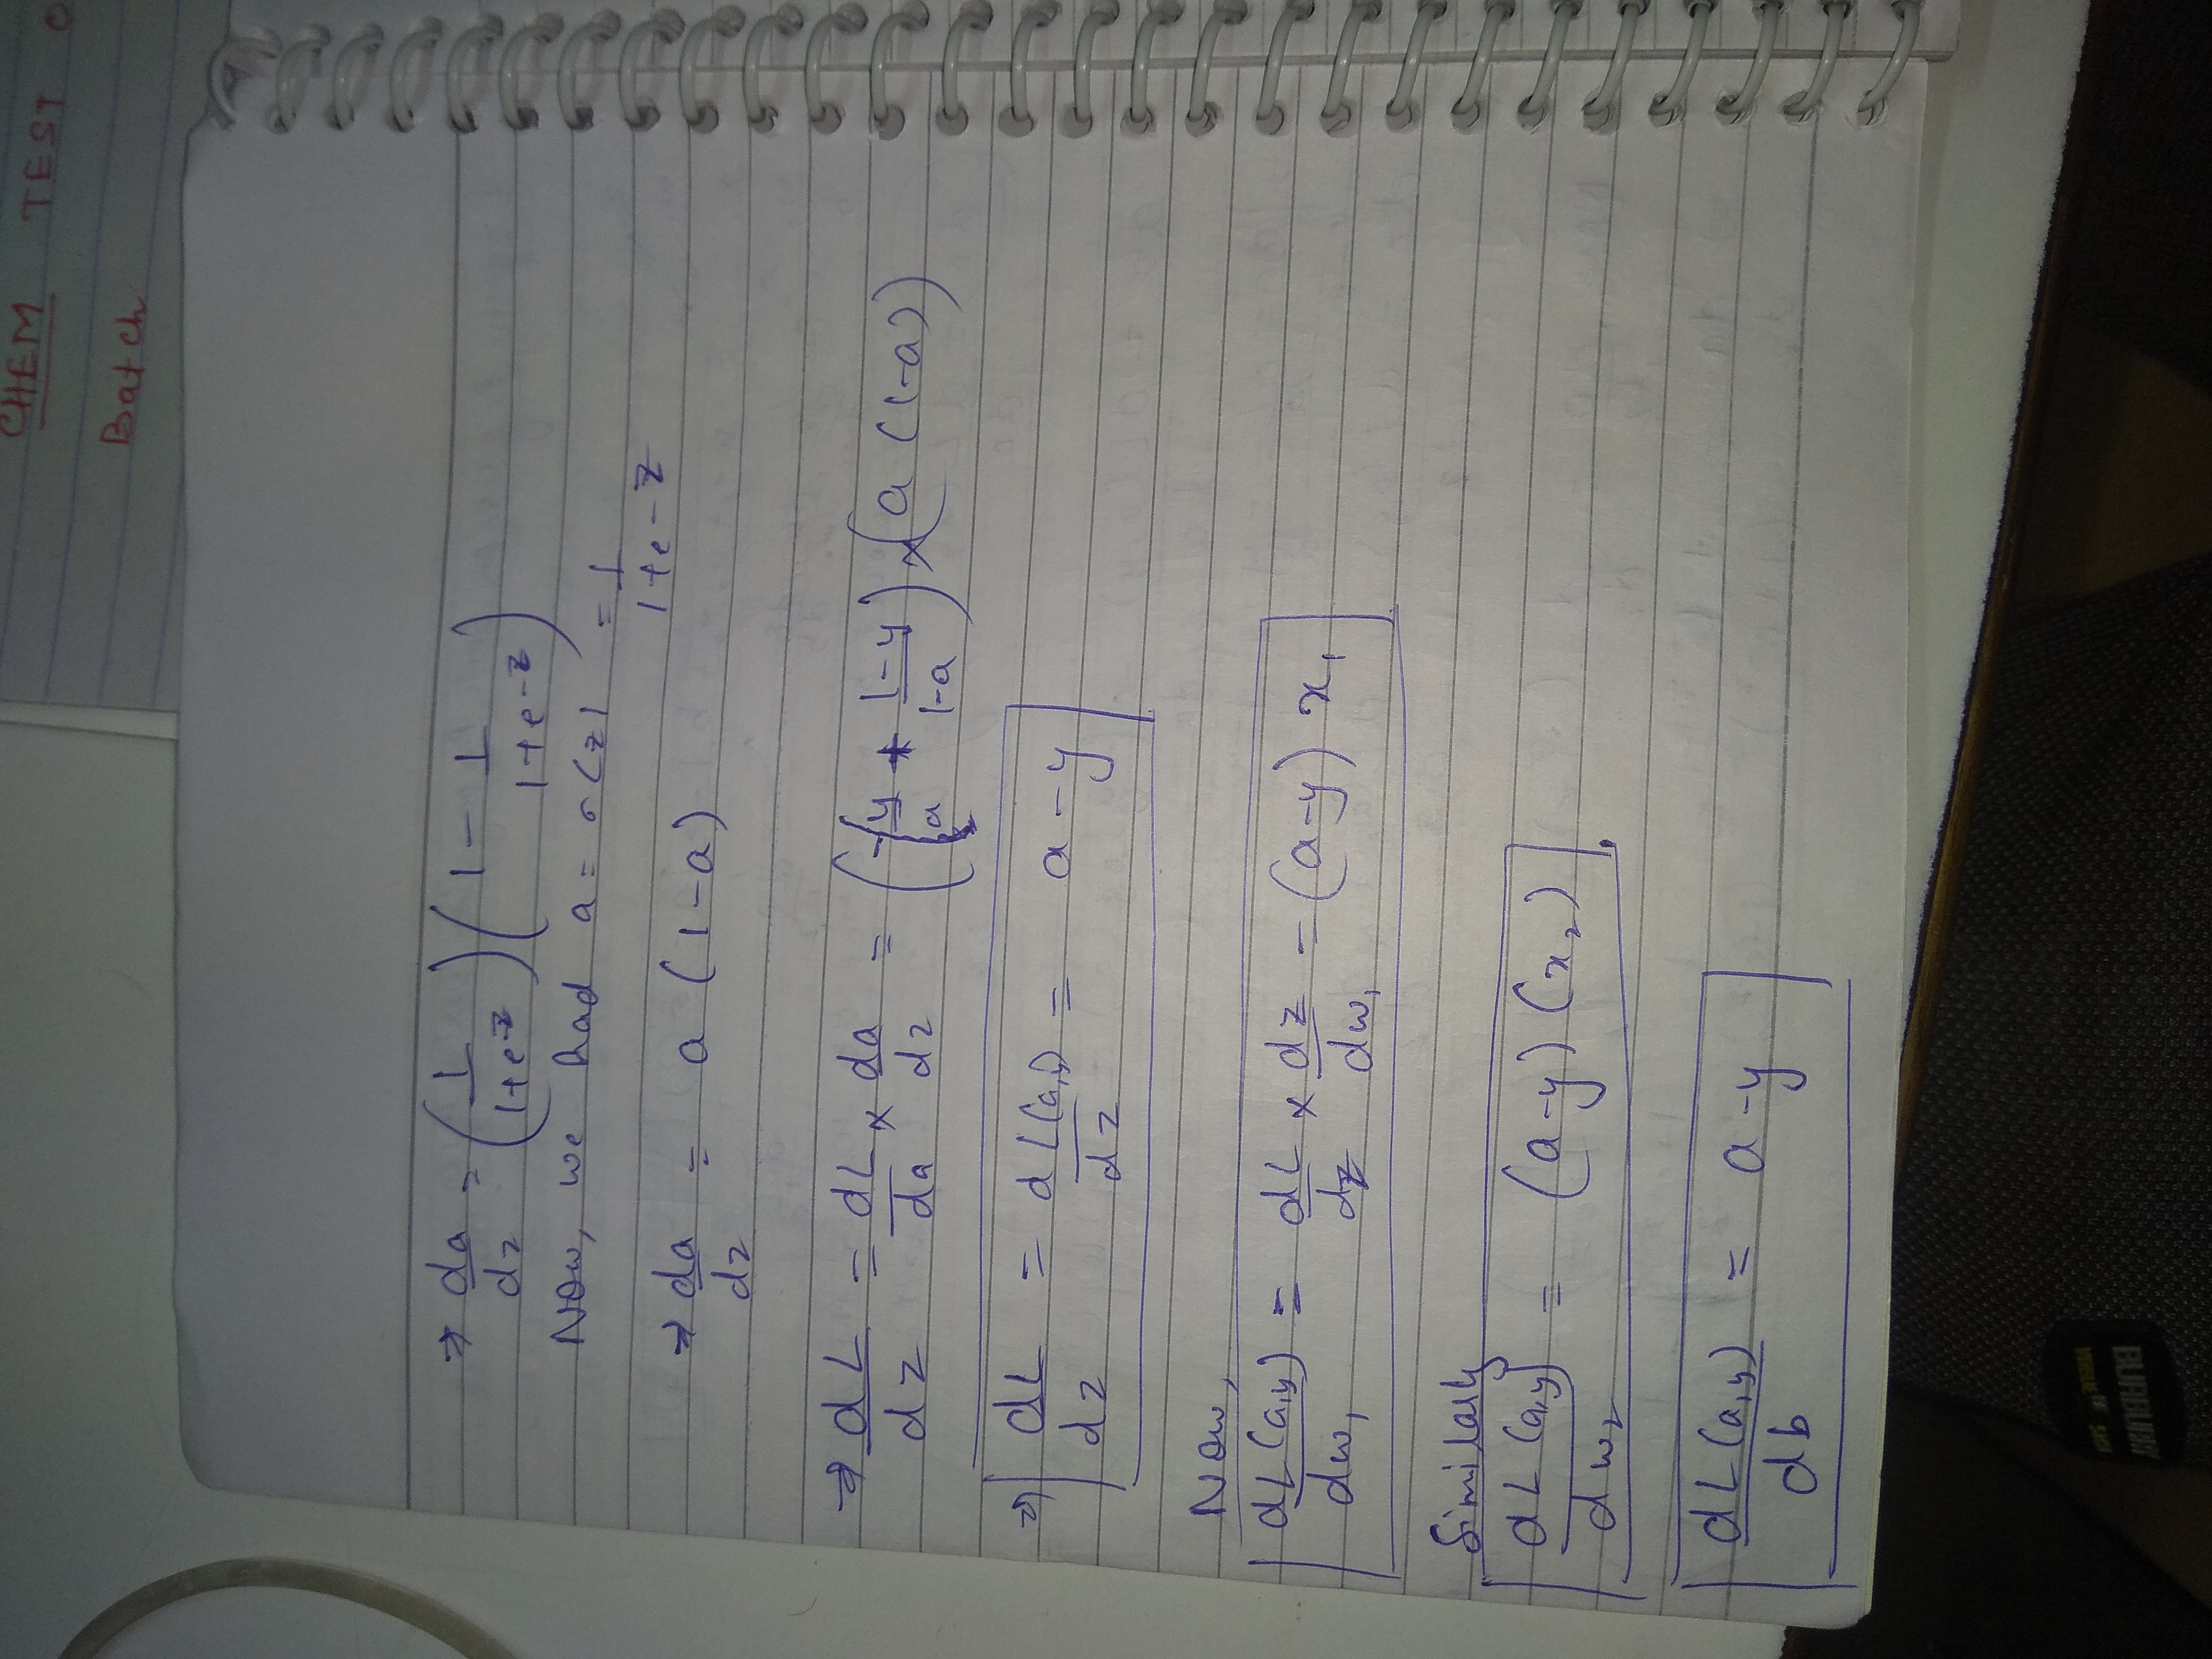 CHEM TEST
Batch
⇒ da/dz = (1/(1+e^-z))(1 - 1/(1+e^-z))
Now, we had a = σ(z) = 1/(1+e^-z)
⇒ da/dz = a(1-a)
⇒ dL/dz = dL/da × da/dz = (-y/a + (1-y)/(1-a)) × (a(1-a))
⇒ dL/dz = dL(a,y)/dz = a-y
Now,
dL(a,y)/dw₁ = dL/dz × dz/dw₁ = (a-y)x₁
Similarly
dL(a,y)/dw₂ = (a-y)(x₂).
dL(a,y)/db = a-y